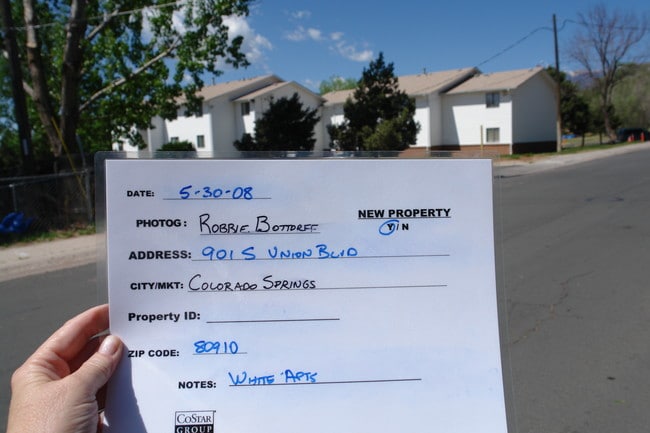 DATE: 5-30-08
PHOTOG: ROBBIE BOTTORFF
NEW PROPERTY
Y/N
ADDRESS: 901 S UNION BLVD
CITY/MKT: COLORADO SPRINGS
Property ID:
ZIP CODE: 80910
NOTES: WHITE APTS
COSTAR
GROUP